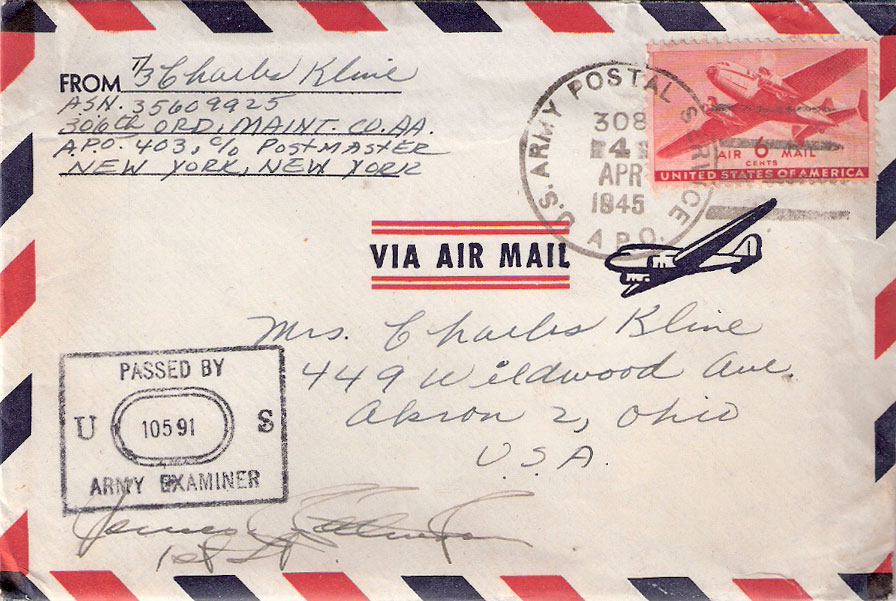 FROM T/3 Charles Kline
ASN. 35609925
306th ORD. MAINT. CO. AA.
A.P.O. 403, c/o POSTMASTER
NEW YORK, NEW YORK
U.S. ARMY POSTAL SERVICE
308
4
APR
1945
A.P.O.
AIR 6 MAIL
CENTS
UNITED STATES OF AMERICA
VIA AIR MAIL
Mrs. Charles Kline
449 Wildwood Ave.
Akron 2, Ohio
U.S.A.
PASSED BY
U 10591 S
ARMY EXAMINER
James
1st Lt